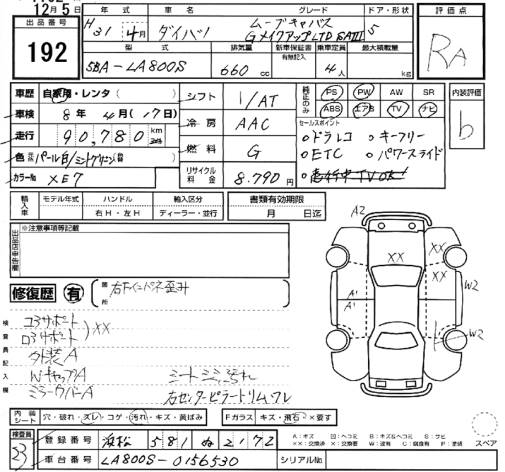 12月5日
出品番号
192
年式 車名 グレード ドア・形状
H31年4月 ダイハツ ムーブキャンバス
GメイクアップLTD SAⅢ 5
型式 排気量 新車保証書 有無記入 乗車定員 最大積載量
5BA-LA800S 660cc 4人 kg
評価点
RA
内装評価
b
車歴 自家用・レンタ( )
車検 8年4月(17日)
走行 90,780 km
色 パール白/ミントグリーン(替)
カラーNo XE7
シフト 1/AT
冷房 AAC
燃料 G
リサイクル料金 8.790円
純正のみ PS PW AW SR
ABS エアB TV ナビ
セールスポイント
○ドラレコ ○キーフリー
○ETC ○パワースライド
○走行中TVOK
輸入車 モデル年式 ハンドル 輸入区分 書類有効期限
右H・左H ディーラー・並行 月 日迄
※注意事項等記載
修復歴 有 箇所
右Fインナーパネ歪み
検査員記入欄
コアサポート
ロアサポート XX
外装A
WキャップA
ミラーカバーA
シート
右センターピラートリムワレ
A2
XX
XX
XX
A1
A1
W2
W2
内装シート 穴・破れ・ズレ・コゲ・汚れ・キズ・黄ばみ
Fガラス キズ・飛石・×要す
検査員
登録番号 浜松 581 ぬ 2172
車台番号 LA800S-0156530
シリアルNo.
A:キズ U:ヘコミ B:キズ&ヘコミ S:サビ
XX:交換済 X:交換要 W:波有 C:腐食有 P:塗装
スペア